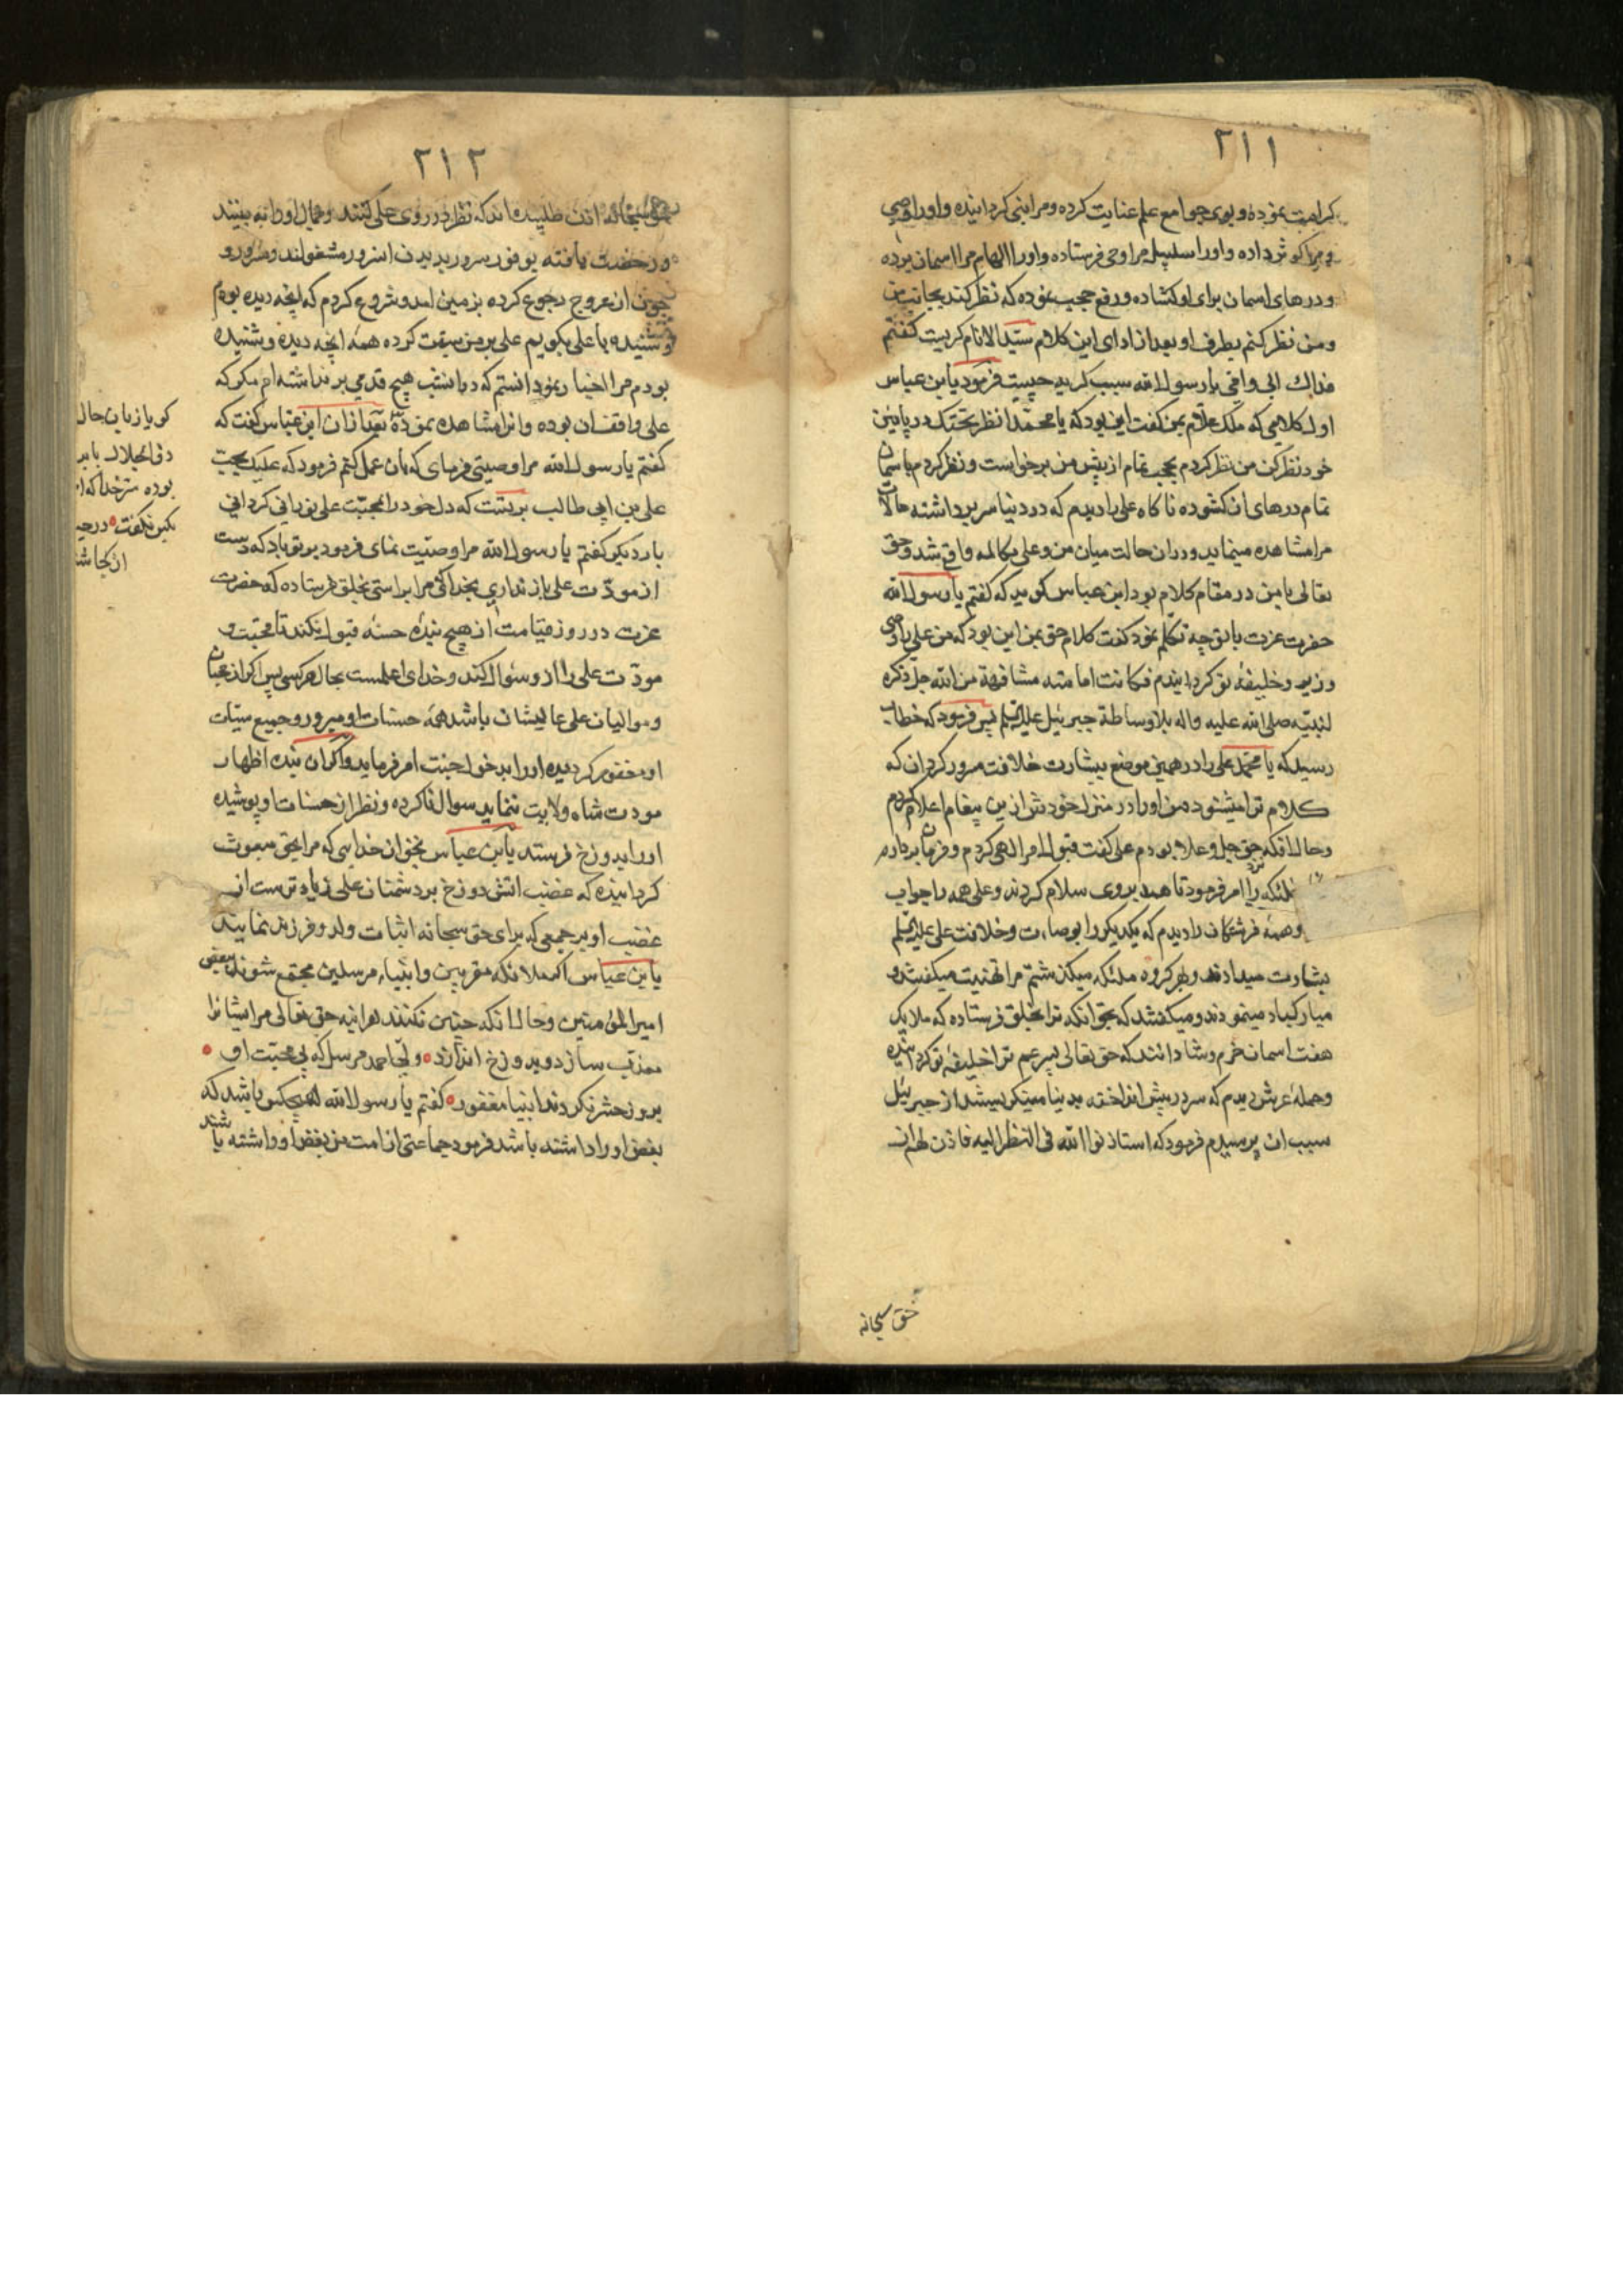 ۲۱۱
کرامت نموده و بوی جوامع علم عنایت کرده و مرا نبی کردانیده و اورا وصی
و مرا کوثر داده و اورا سلسبیل مرا وحی فرستاده و اورا الهام مرا باسمان برده
و درهای اسمان برای او کشاده و رفع حجب نموده که نظر کند بجانب من
و من نظر کنم بطرف او بعد از ادای این کلام سید الانام کریست کفتم
فداک ابی و امی یا رسول الله سبب کریه چیست فرمود یا بن عباس
اول کلامی که ملک علام بمن کفت این بود که یا محمد انظر تحتک در پائین
خود نظر کن من نظر کردم حجب تمام از پیش من برخواست و نظر کردم باسمان
تمام درهای ان کشوده ناکاه علی را دیدم که در دنیا سر برداشته حالات
مرا مشاهده مینماید و دران حالت میان من و علی مکالمه واقع شد و حق
تعالی با من در مقام کلام بود ابن عباس کوید که کفتم یا رسول الله
حضرت عزت با تو چه تکلم نمود کفت کلام حق بمن این بود که من علی را وصی
وزیر و خلیفه تو کردانیدم فکانت امامته مشافهة من الله جل ذکره
لنبیه صلی الله علیه واله بلا وساطة جبرئیل علیه السلم پس فرمود که خطاب
رسید که یا محمد علی را در همین موضع ببشارت خلافت مسرور کردان که
کلام ترا میشنود من اورا در منزل خودش ازین پیغام اعلام کردم
و حال انکه نزد حق جل و علا بودم علی کفت قبول امر الهی کردم و فرمان بردارم
ملئکه را امر فرمود تا همه بروی سلام کردند و علی همه را جواب
و همهٔ فرشتکان را دیدم که یکدیکر را بوصایت و خلافت علی علیه السلم
بشارت میدادند و بهر کروه ملئکه میکذشتم مرا تهنیت میکفتند و
مبارکباد مینمودند و میکفتند که بحق انکه ترا بخلق فرستاده که ملایک
هفت اسمان خرم و شادانند که حق تعالی پسر عم ترا خلیفهٔ تو کردانیده
و حملهٔ عرش دیدم که سر در پیش انداخته بدنیا مینکریستند از جبرئیل
سبب ان پرسیدم فرمود که استاذنوا الله فی النظر الیه فاذن لهم از
حق سبحانه
۲۱۲
حق سبحانه اذن طلبیده اند که نظر در روی علی کنند و جمال اورا به بینند
و رخصت یافته بوفور سرور بدیدن انسرور مشغولند و
چون ازعروج رجوع کرده بزمین امد و شروع کردم که انچه دیده بودم
و شنیده با علی بکویم علی بر من سبقت کرده همهٔ انچه دیده و شنیده
بودم مرا اخبار نمود دانستم که در انشب هیچ قدمی بر نداشته ام مکر که
علی واقف ان بوده و انرا مشاهده نموده بعد ازان ابن عباس کفت که
کفتم یا رسول الله مرا وصیتی فرمای که بان عمل کنم فرمود که علیک بحب
علی بن ابی طالب بر تست که دل خود را بمحبت علی نورانی کردانی
بار دیکر کفتم یا رسول الله مرا وصیت نمای فرمود بر تو باد که دست
از مودت علی باز نداری بخدائی که مرا براستی بخلق فرستاده که حضرت
عزت در روز قیامت از هیچ بندهٔ حسنه قبول نکند تا محبت و
مودت علی را از و سئوال کند و خدای اعلمست بحال هر کسی پس اکر از محبان
و موالیان علی عالیشان باشد همهٔ حسنات او مبرور و جمیع سیئات
او مغفور کردیده اورا بدخول جنت امر فرماید و اکر ان بنده اظهار
مودت شاه ولایت ننماید سوال ناکرده و نظر از حسنات او پوشیده
اورا بدوزخ فرستد یا بن عباس بحق ان خدایی که مرا بحق مبعوث
کردانیده که غضب اتش دوزخ بر دشمنان علی زیادترست از
غضب او بر جمعی که برای حق سبحانه اثبات ولد و فرزند نمایند
یا بن عباس اکر ملائکه مقربین و انبیاء مرسلین مجتمع شوند ببغض
امیر المؤمنین و حال انکه چنین نکنند هر اینه حق تعالی مر ایشانرا
معذب سازد و بدوزخ اندازد ولی احمد مرسل که بی محبت او
بروز حشر نکردند انبیا مغفور کفتم یا رسول الله هیچکس باشد که
بغض اورا داشته باشد فرمود جماعتی از امت من بغض او داشته باشند
کویا زبان حال
ذی الجلال با
بوده سر خدا که
بکس نکفت در
از کجا